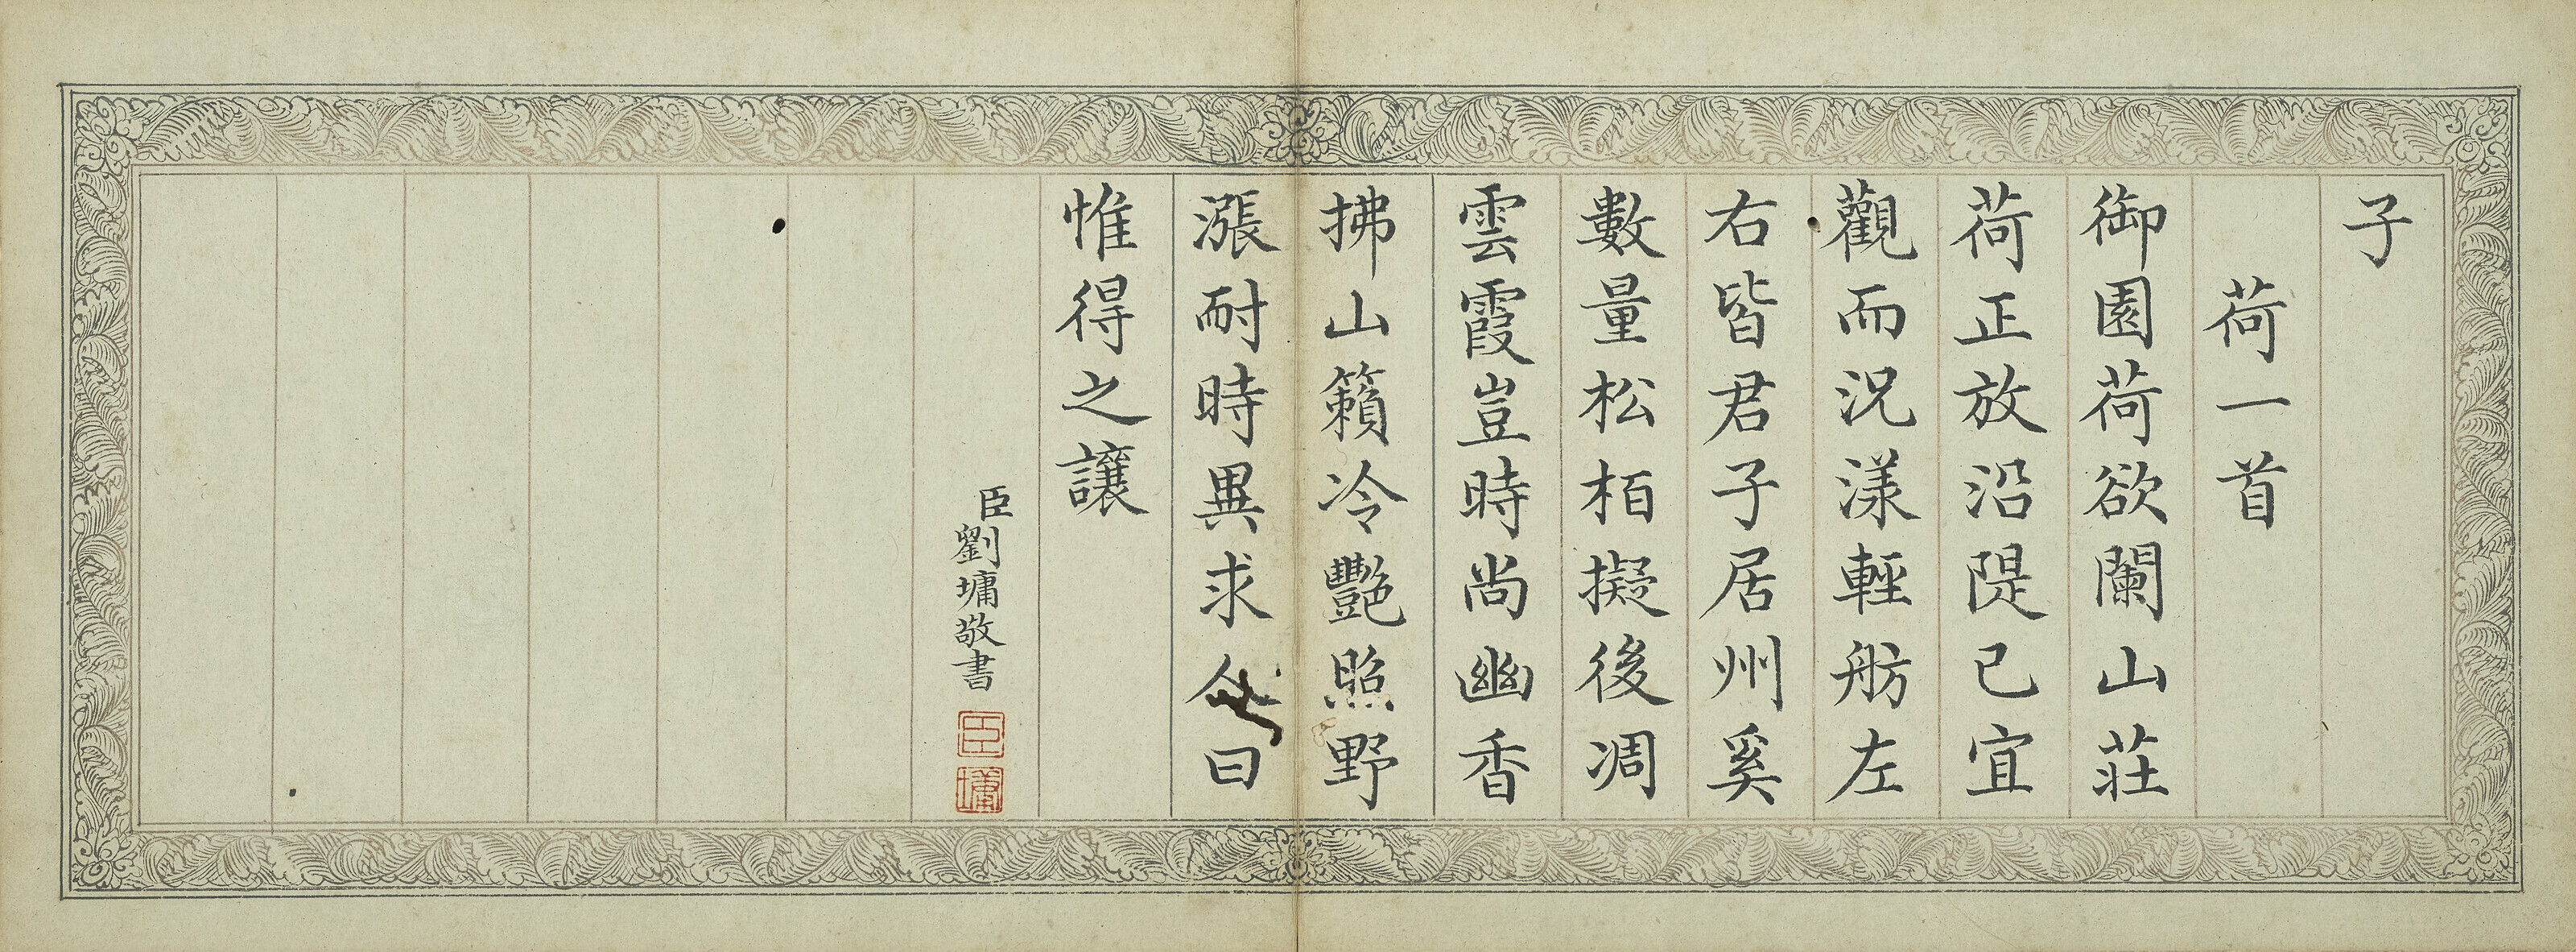 子
荷一首
御園荷欲闌山莊
荷正放沿隄已宜
觀而況漾輕舫左
右皆君子居州奚
數量松栢擬後凋
雲霞豈時尚幽香
拂山籟冷艷照野
漲耐時異求人曰
惟得之讓
臣劉墉敬書
臣
墉